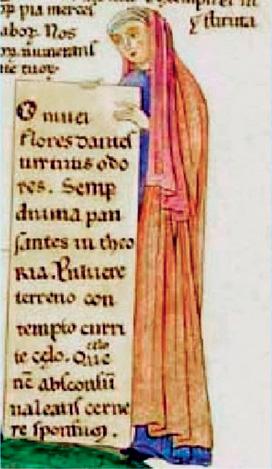 pia merces
labor. Nos
numerans
O niuei
flores dantes
uirtutis odo
res. Semp
diuina pau
santes in theo
ria. Puluere
terreno con
tempto curri
celo
te celo. Que
nc̄ absconsū
ualeatis cerne
re sponsum.